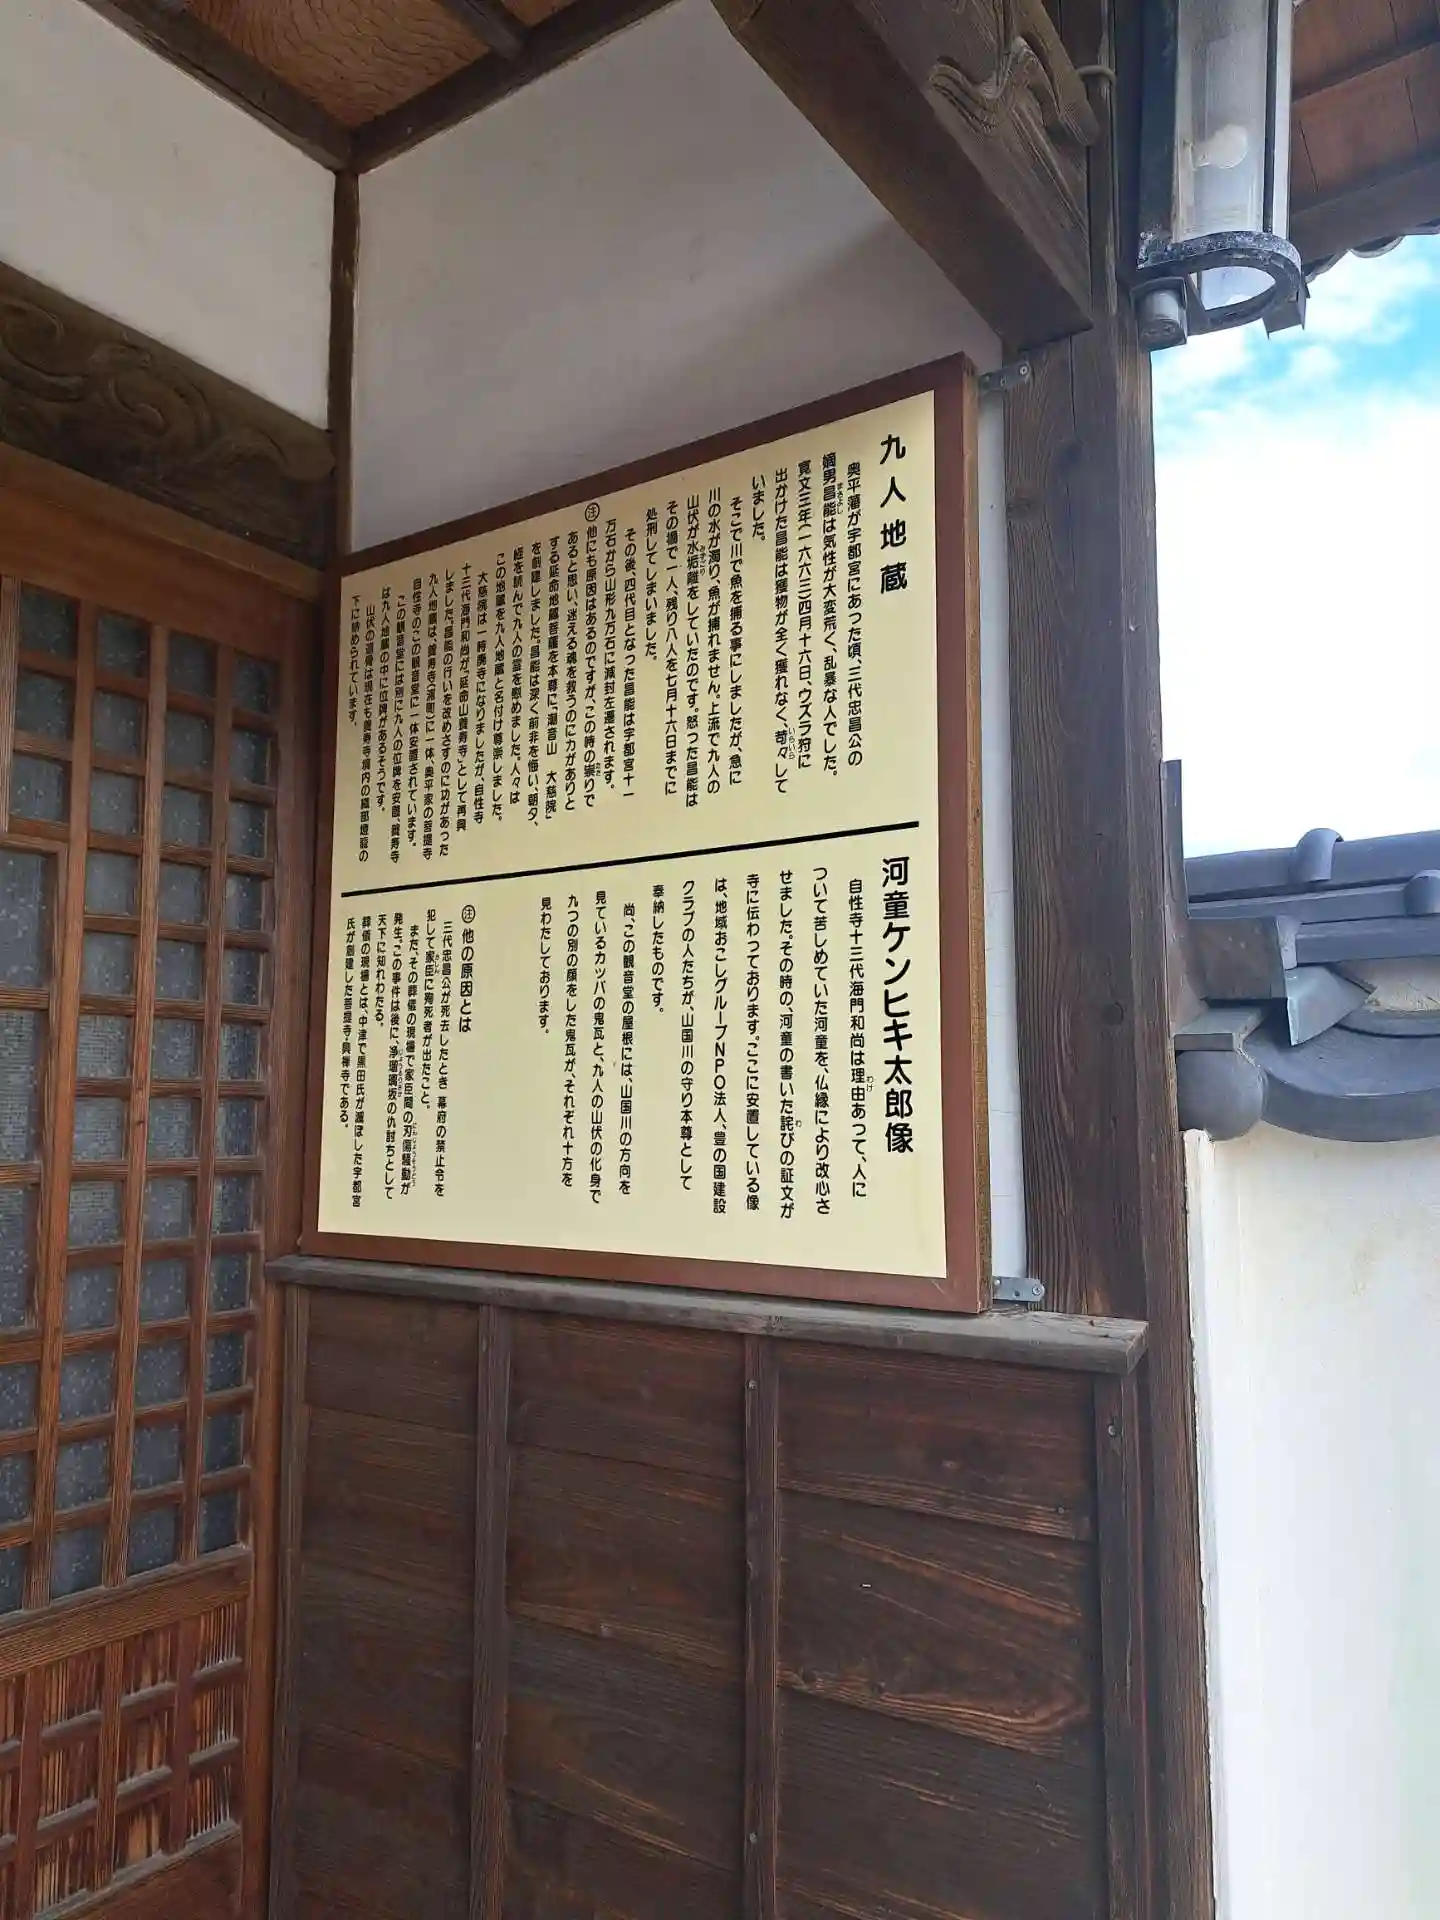 九人地蔵
奥平藩が宇都宮にあった頃、三代忠昌公の
嫡男昌能は気性が大変荒く、乱暴な人でした。
寛文三年(一六六三)四月十六日、ウズラ狩に
出かけた昌能は獲物が全く獲れなく、苛々して
いました。
そこで川で魚を捕る事にしましたが、急に
川の水が濁り、魚が捕れません。上流で九人の
山伏が水垢離をしていたのです。怒った昌能は
その場で一人、残り八人を七月十六日までに
処刑してしまいました。
その後、四代目となった昌能は宇都宮十一
万石から山形九万石に減封左遷されます。
㊟他にも原因はあるのですが、この時の祟りで
あると思い、迷える魂を救うのに力がありと
する延命地蔵菩薩を本尊に「潮音山 大慈院」
を創建しました。昌能は深く前非を悔い、朝夕、
経を読んで九人の霊を慰めました。人々は
この地蔵を九人地蔵と名付け尊崇しました。
大慈院は一時廃寺になりましたが、自性寺
十三代海門和尚が「延命山養寿寺」として再興
しました。昌能の行いを改めさすのに功があった
九人地蔵は、養寿寺に一体、奥平家の菩提寺
自性寺のこの観音堂に一体安置されています。
この観音堂には別に九人の位牌を安置、養寿寺
は九人地蔵の中に位牌があるそうです。
山伏の遺骨は現在も養寿寺境内の織部燈籠の
下に納められています。
河童ケンヒキ太郎像
自性寺十三代海門和尚は理由あって、人に
ついて苦しめていた河童を、仏縁により改心さ
せました。その時の、河童の書いた詫びの証文が
寺に伝わっております。ここに安置している像
は、地域おこしグループNPO法人、豊の国建設
クラブの人たちが、山国川の守り本尊として
奉納したものです。
尚、この観音堂の屋根には、山国川の方向を
見ているカッパの鬼瓦と、九人の山伏の化身で
九つの別の顔をした鬼瓦が、それぞれ十方を
見わたしております。
㊟他の原因とは
三代忠昌公が死去したとき 幕府の禁止令を
犯して家臣に殉死者が出たこと。
また、その葬儀の現場で家臣間の刃傷騒動が
発生。この事件は後に、浄瑠璃坂の仇討ちとして
天下に知れわたる。
葬儀の現場とは、中津で黒田氏が滅ぼした宇都宮
氏が創建した菩提寺・興禅寺である。